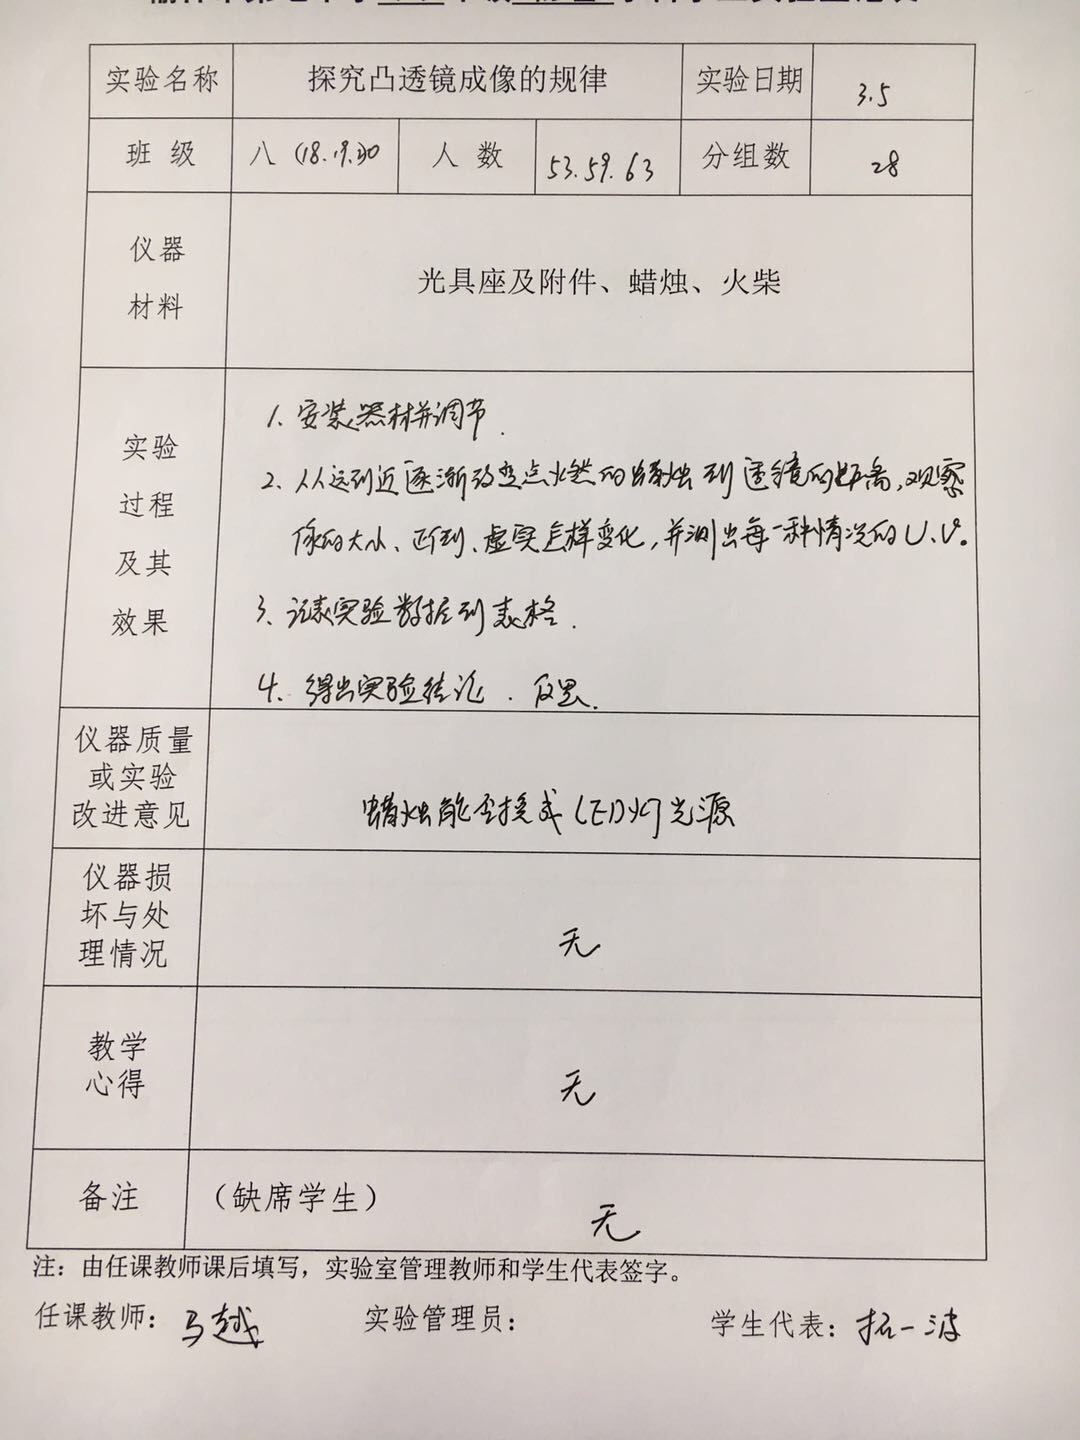 实验名称 探究凸透镜成像的规律 实验日期 3.5
班 级 八 (18.19.20 人 数 53.59.63 分组数 28
仪器
材料
光具座及附件、蜡烛、火柴
实验
过程
及其
效果
1. 安装器材并调节.
2. 从远到近逐渐改变点燃的蜡烛到透镜的距离,观察
像的大小、正倒、虚实怎样变化,并测出每一种情况的U、V。
3. 记录实验数据到表格.
4. 得出实验结论.
仪器质量
或实验
改进意见
蜡烛能否换成LED灯光源
仪器损
坏与处
理情况
无
教学
心得
无
备注 （缺席学生）
无
注：由任课教师课后填写，实验室管理教师和学生代表签字。
任课教师：马越 实验管理员： 学生代表：拓一波